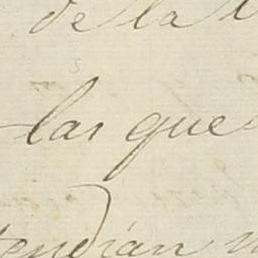 de la
las que
tendian